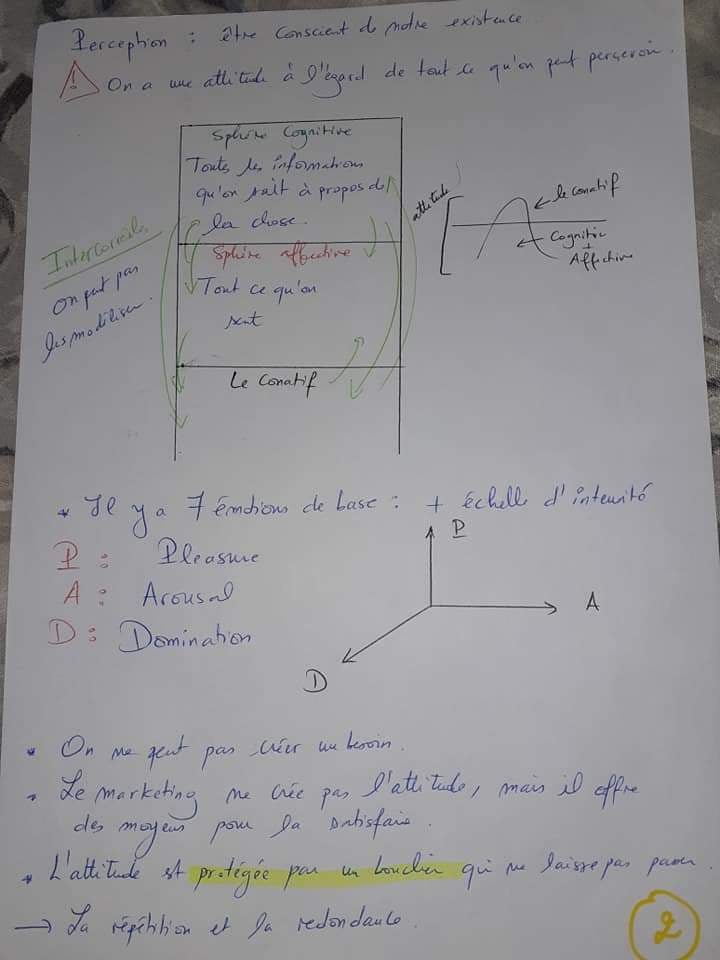 Perception : être conscient de notre existence
On a une attitude à l'égard de tout ce qu'on peut percevoir.
Sphère Cognitive
Toutes les informations
qu'on sait à propos de
la chose.
Sphère affective
Tout ce qu'on
sent
Le Conatif
Interconnectés
on peut pas
les modéliser.
attitude
le conatif
Cognitive
+
Affective
* Il y a 7 émotions de base : + échelle d'intensité
P : Pleasure
A : Arousal
D : Domination
P
A
D
* On ne peut pas créer un besoin.
* Le marketing ne crée pas l'attitude, mais il offre
des moyens pour la satisfaire.
* L'attitude est protégée par un bouclier qui ne laisse pas passer.
→ La répétition et la redondance.
2